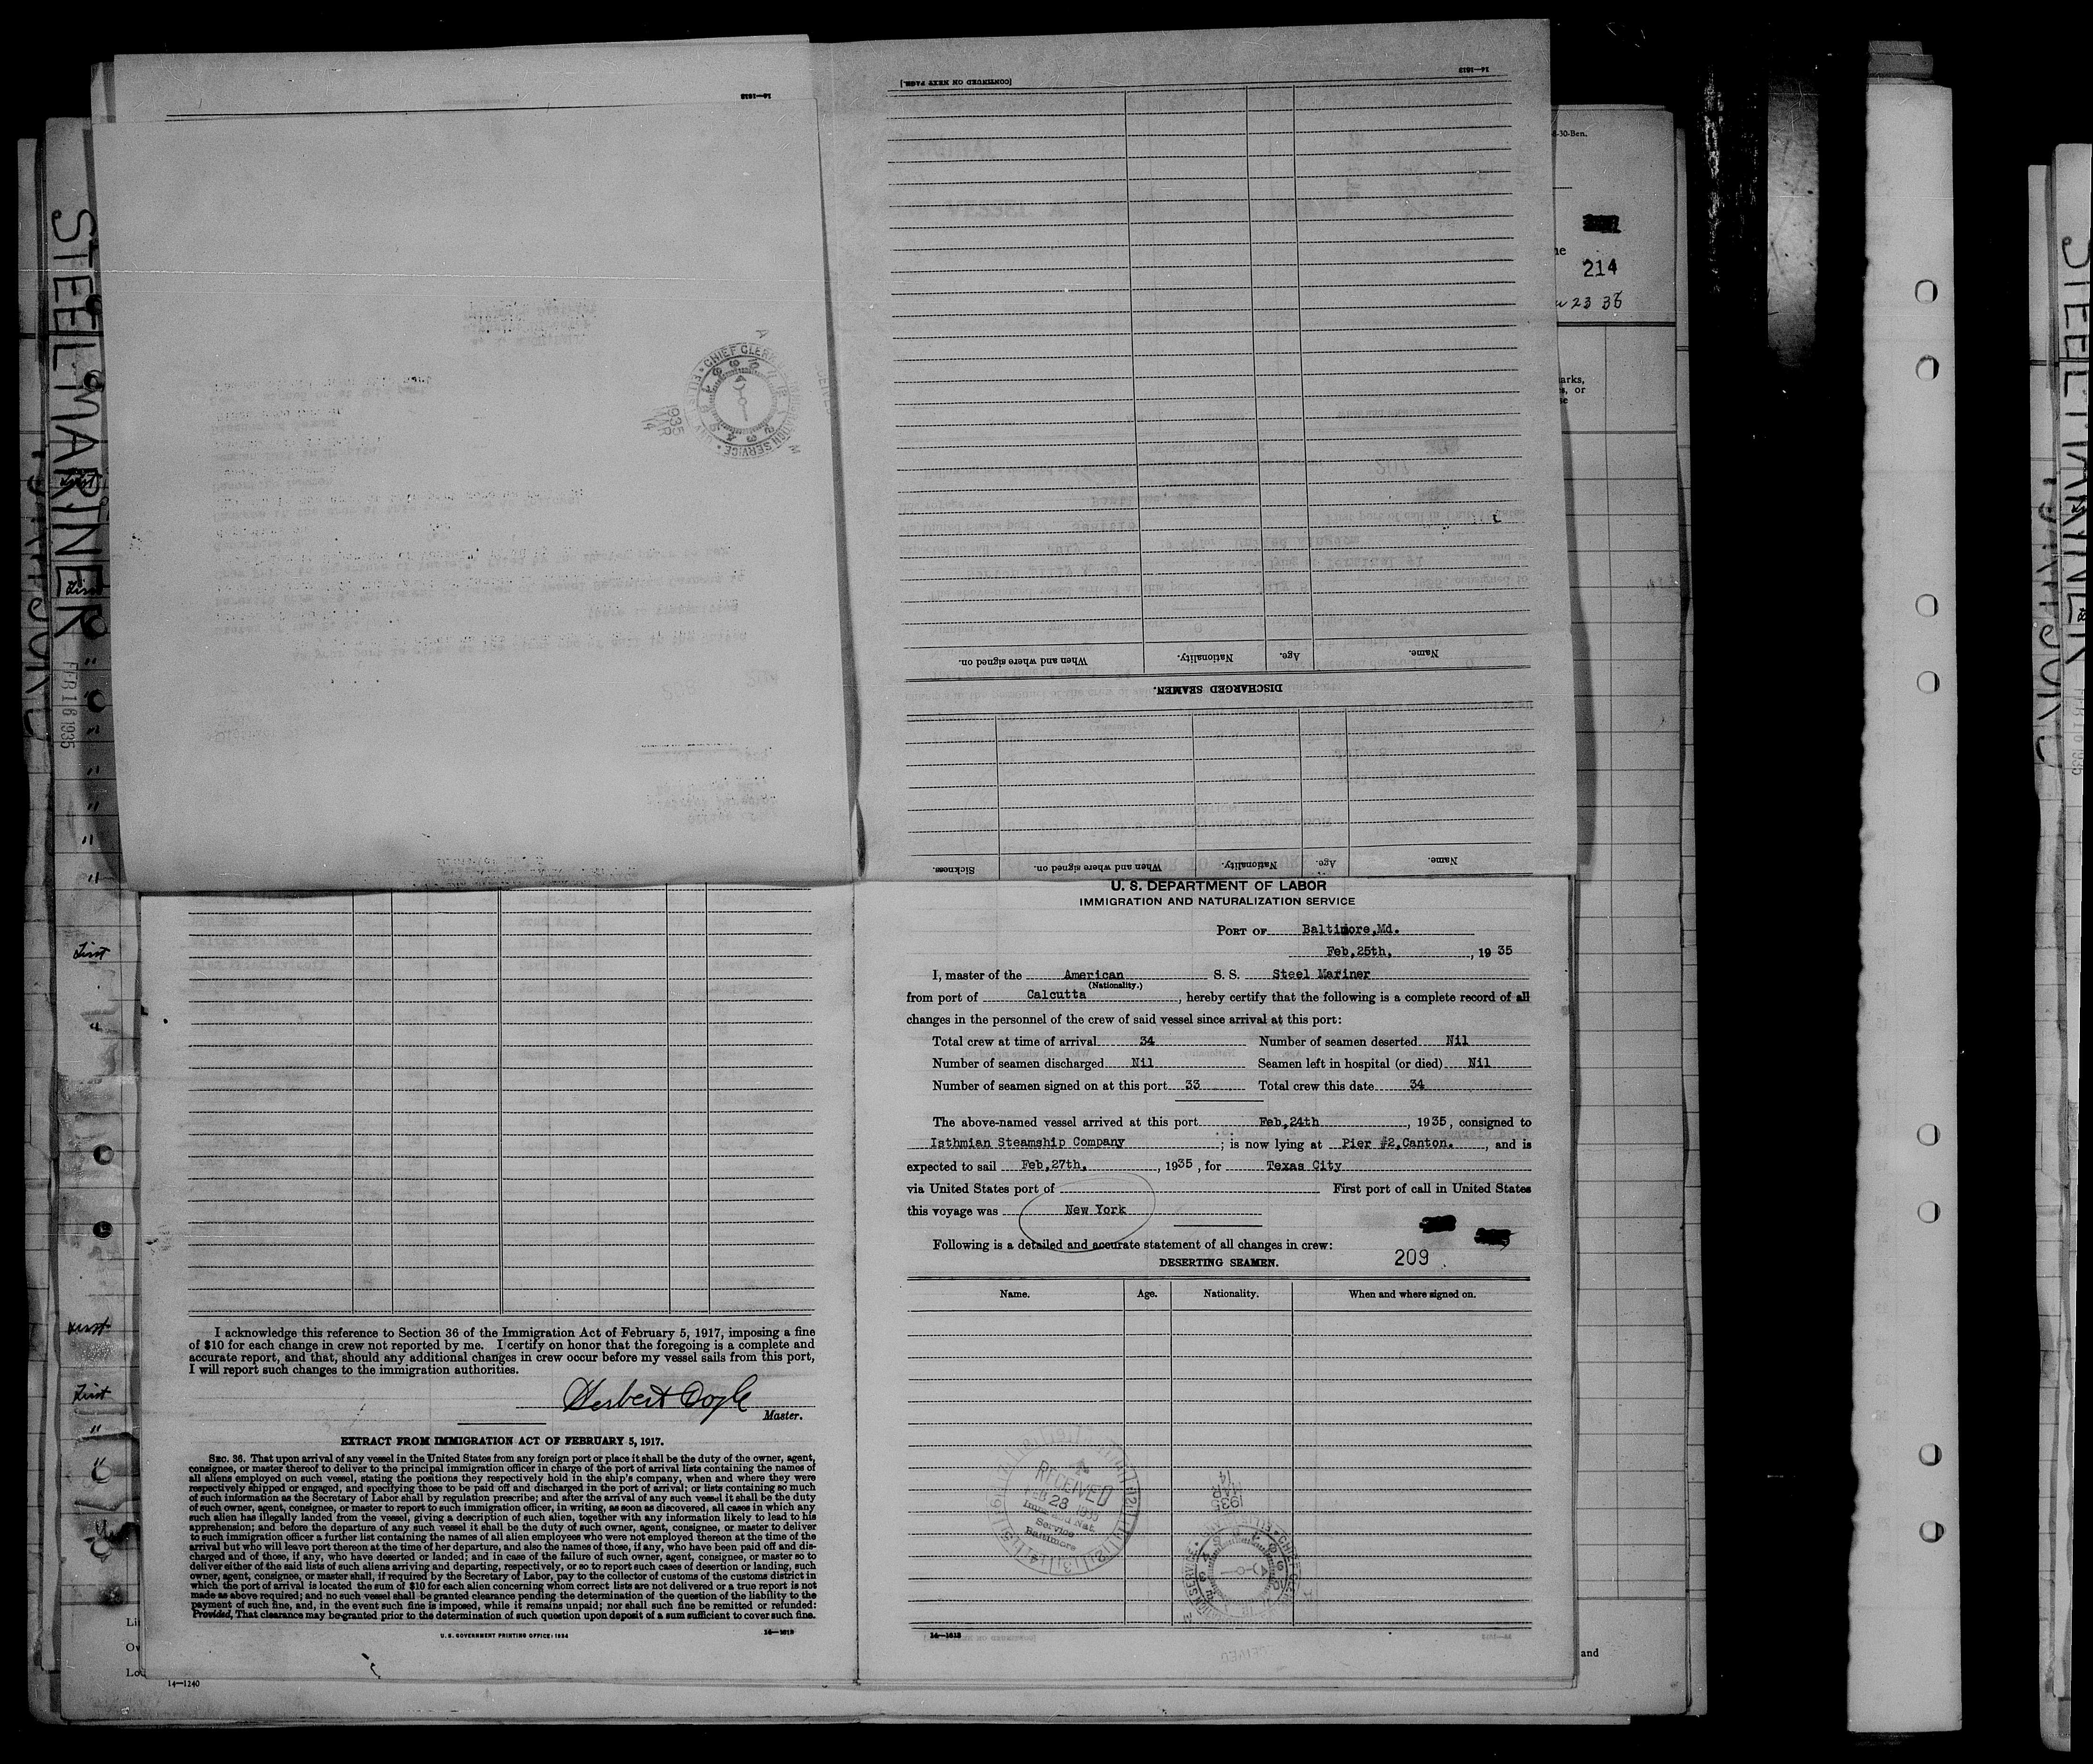 STEEL MARINER
FEB 16 1935
First
First
First
First
First
14—1613
CHIEF CLERK
1935
MAR
14
[CONTINUED ON NEXT PAGE.]
14—1613
When and where signed on.
Nationality.
Age.
Name.
DISCHARGED SEAMEN.
Sickness.
When and where signed on.
Nationality.
Age.
Name.
-30-Ben.
214
23 35
arks,
s, or
and
U. S. DEPARTMENT OF LABOR
IMMIGRATION AND NATURALIZATION SERVICE
PORT OF Baltimore,Md.
Feb,25th, , 1935
I, master of the American S. S. Steel Mariner
(Nationality.)
from port of Calcutta, hereby certify that the following is a complete record of all
changes in the personnel of the crew of said vessel since arrival at this port:
Total crew at time of arrival 34 Number of seamen deserted Nil
Number of seamen discharged Nil Seamen left in hospital (or died) Nil
Number of seamen signed on at this port 33 Total crew this date 34
The above-named vessel arrived at this port Feb,24th, 1935, consigned to
Isthmian Steamship Company; is now lying at Pier #2,Canton., and is
expected to sail Feb,27th,, 1935, for Texas City
via United States port of First port of call in United States
this voyage was New York
Following is a detailed and accurate statement of all changes in crew:
209
DESERTING SEAMEN.
Name. Age. Nationality. When and where signed on.
RECEIVED
FEB 28 1935
Immi. and Nat.
Service
Baltimore
1935
MAR
14
14—1613
I acknowledge this reference to Section 36 of the Immigration Act of February 5, 1917, imposing a fine
of $10 for each change in crew not reported by me. I certify on honor that the foregoing is a complete and
accurate report, and that, should any additional changes in crew occur before my vessel sails from this port,
I will report such changes to the immigration authorities.
Herbert Doyle
Master.
EXTRACT FROM IMMIGRATION ACT OF FEBRUARY 5, 1917.
SEC. 36. That upon arrival of any vessel in the United States from any foreign port or place it shall be the duty of the owner, agent,
consignee, or master thereof to deliver to the principal immigration officer in charge of the port of arrival lists containing the names of
all aliens employed on such vessel, stating the positions they respectively hold in the ship's company, when and where they were
respectively shipped or engaged, and specifying those to be paid off and discharged in the port of arrival; or lists containing so much
of such information as the Secretary of Labor shall by regulation prescribe; and after the arrival of any such vessel it shall be the duty
of such owner, agent, consignee, or master to report to such immigration officer, in writing, as soon as discovered, all cases in which any
such alien has illegally landed from the vessel, giving a description of such alien, together with any information likely to lead to his
apprehension; and before the departure of any such vessel it shall be the duty of such owner, agent, consignee, or master to deliver
to such immigration officer a further list containing the names of all alien employees who were not employed thereon at the time of the
arrival but who will leave port thereon at the time of her departure, and also the names of those, if any, who have been paid off and dis-
charged and of those, if any, who have deserted or landed; and in case of the failure of such owner, agent, consignee, or master so to
deliver either of the said lists of such aliens arriving and departing, respectively, or so to report such cases of desertion or landing, such
owner, agent, consignee, or master shall, if required by the Secretary of Labor, pay to the collector of customs of the customs district in
which the port of arrival is located the sum of $10 for each alien concerning whom correct lists are not delivered or a true report is not
made as above required; and no such vessel shall be granted clearance pending the determination of the question of the liability to the
payment of such fine, and, in the event such fine is imposed, while it remains unpaid; nor shall such fine be remitted or refunded:
Provided, That clearance may be granted prior to the determination of such question upon deposit of a sum sufficient to cover such fine.
U. S. GOVERNMENT PRINTING OFFICE: 1934 14—1613
14—1240